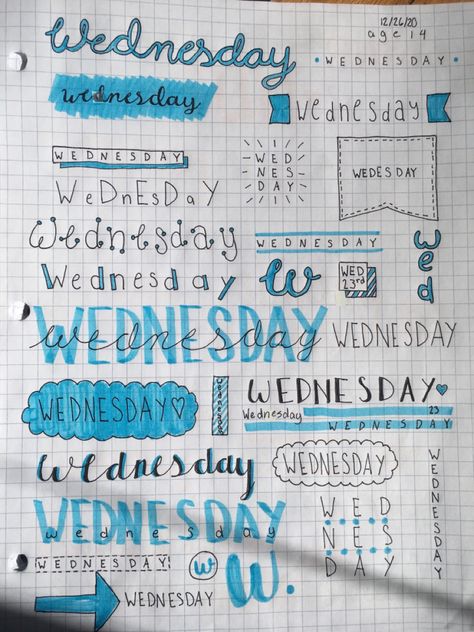 12/26/20
age 14
Wednesday
• WEDNESDAY •
wednesday
Wednesday
WEDNESDAY
WED
NES
DAY
WEDESDAY
WeDnEsDaY
Wednesday
WEDNESDAY
wed
Wednesday
w
WED
23rd
WEDNESDAY
wednesday
WEDNESDAY
WEDNESDAY♡
Wednesday
WEDNESDAY♥
Wednesday
23
WEDNESDAY
wednesday
WEDNESDAY
WEDNESDAY
WEDNESDAY
wednesday
WED
NES
DAY
WEDNESDAY
w
W.
WEDNESDAY